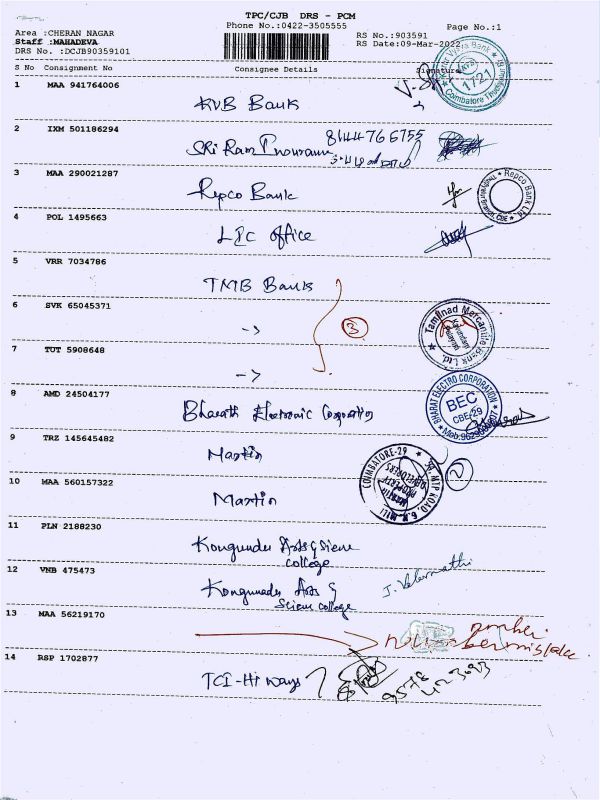 TPC/CJB DRS - PCM
Phone No.:0422-3505555
Page No.:1
Area :CHERAN NAGAR
Staff :MAHADEVA
DRS No. :DCJB90359101
RS No.:903591
RS Date:09-Mar-2022
S No Consignment No Consignee Details Signature
1 MAA 941764006
KVB Bank
1721
2 IXM 501186294
Sri Ram 8144766755
3 MAA 290021287
Repco Bank
Repco Bank Ltd.
4 POL 1495663
LIC office
5 VRR 7034786
TMB Bank
6 SVK 65045371
3
Tamilnad Mercantile Bank Ltd.
7 TUT 5908648
8 AMD 24504177
Bharath Electronic Corporation
BHARAT ELECTRO CORPORATION
BEC
CBE-29
9 TRZ 145645482
Martin
2
10 MAA 560157322
Martin
COIMBATORE-29
MARTIN PROPERTY DEVELOPERS
11 PLN 2188230
Kongunadu Arts & Sciene
college
12 VNB 475473
Kongunadu Arts &
Scienc college
13 MAA 56219170
number mistake
14 RSP 1702877
TCI-Hi ways